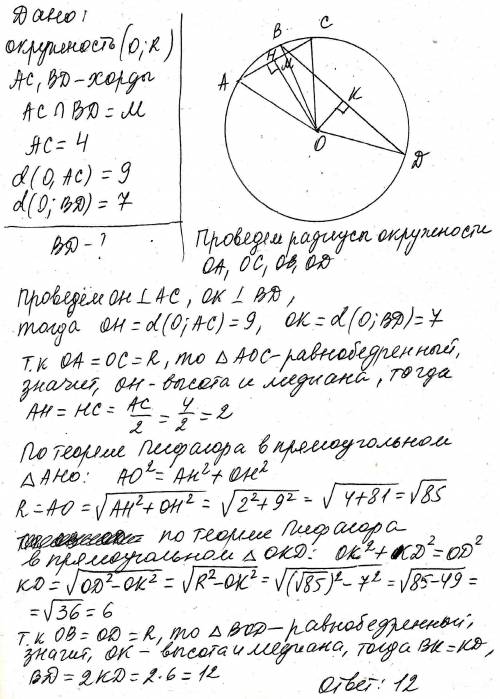 Дано:
окружность (O; R)
AC, BD - хорды
AC ∩ BD = M
AC = 4
d(O, AC) = 9
d(O; BD) = 7
BD - ?
A
B
C
H
M
K
O
D
Проведём радиусы окружности
OA, OC, OB, OD
Проведём OH ⊥ AC, OK ⊥ BD,
тогда OH = d(O; AC) = 9, OK = d(O; BD) = 7
Т.к OA = OC = R, то △AOC - равнобедренный,
значит, OH - высота и медиана, тогда
AH = HC = AC/2 = 4/2 = 2
По теореме Пифагора в прямоугольном
△AHO: AO² = AH² + OH²
R = AO = √(AH² + OH²) = √(2² + 9²) = √(4+81) = √85
по теореме Пифагора
в прямоугольном △OKD: OK² + KD² = OD²
KD = √(OD² - OK²) = √(R² - OK²) = √((√85)² - 7²) = √(85-49) =
= √36 = 6
Т.к OB = OD = R, то △BOD - равнобедренный,
значит, OK - высота и медиана, тогда BK = KD,
BD = 2KD = 2·6 = 12
Ответ: 12